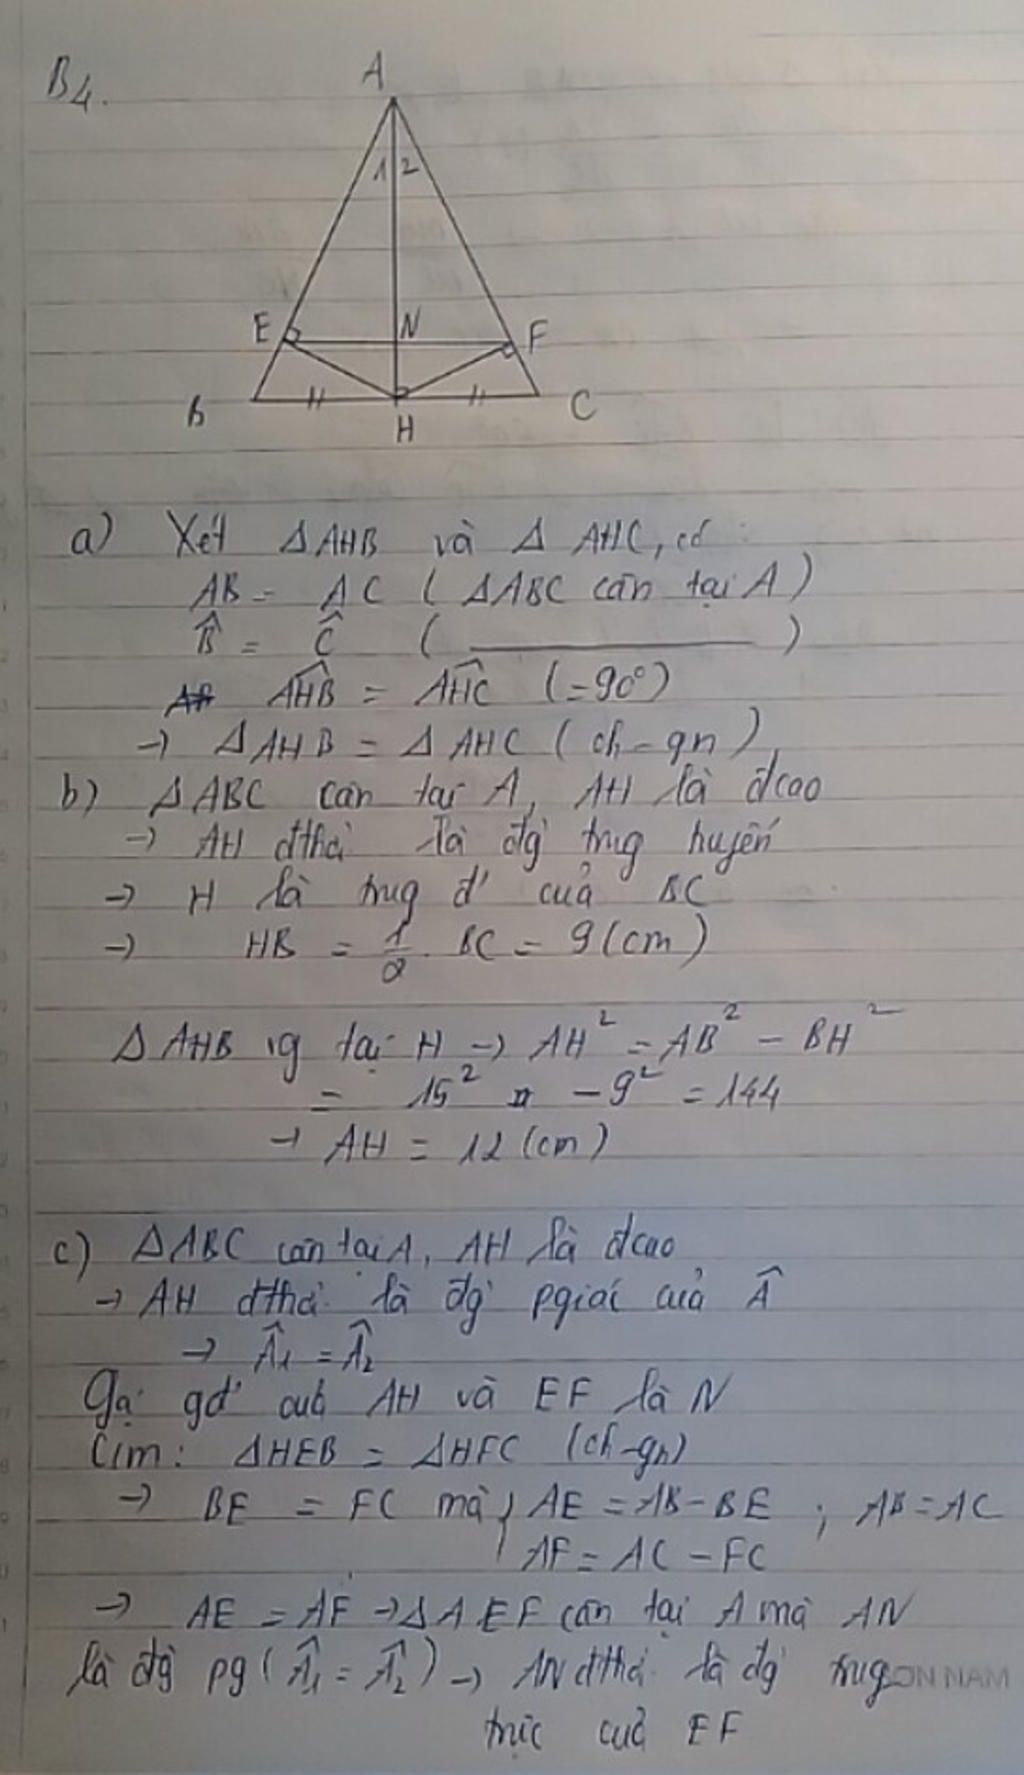 B4.
A
1 2
E N F
B H C
a) Xét ΔAHB và Δ AHC, có:
AB = AC ( ΔABC cân tại A )
B̂ = Ĉ ( ———— )
AHB̂ = AHĈ (=90°)
→ ΔAHB = ΔAHC ( ch - gn )
b) ΔABC cân tại A, AH là đcao
→ AH đthời là đg trug huyến
→ H là trug đ' của BC
→ HB = 1/2 . BC = 9 (cm)
ΔAHB vg tại H → AH² = AB² - BH²
= 15² - 9² = 144
→ AH = 12 (cm)
c) ΔABC cân tại A, AH là đcao
→ AH đthời là đg pgiác của Â
→ Â1 = Â2
Gọi gđ' của AH và EF là N
C/m: ΔHEB = ΔHFC (ch-gn)
→ BE = FC mà { AE = AB - BE ; AB = AC
AF = AC - FC
→ AE = AF → ΔAEF cân tại A mà AN
là đg pg ( Â1 = Â2 ) → AN đthời là đg trug
trực của EF
ON NAM